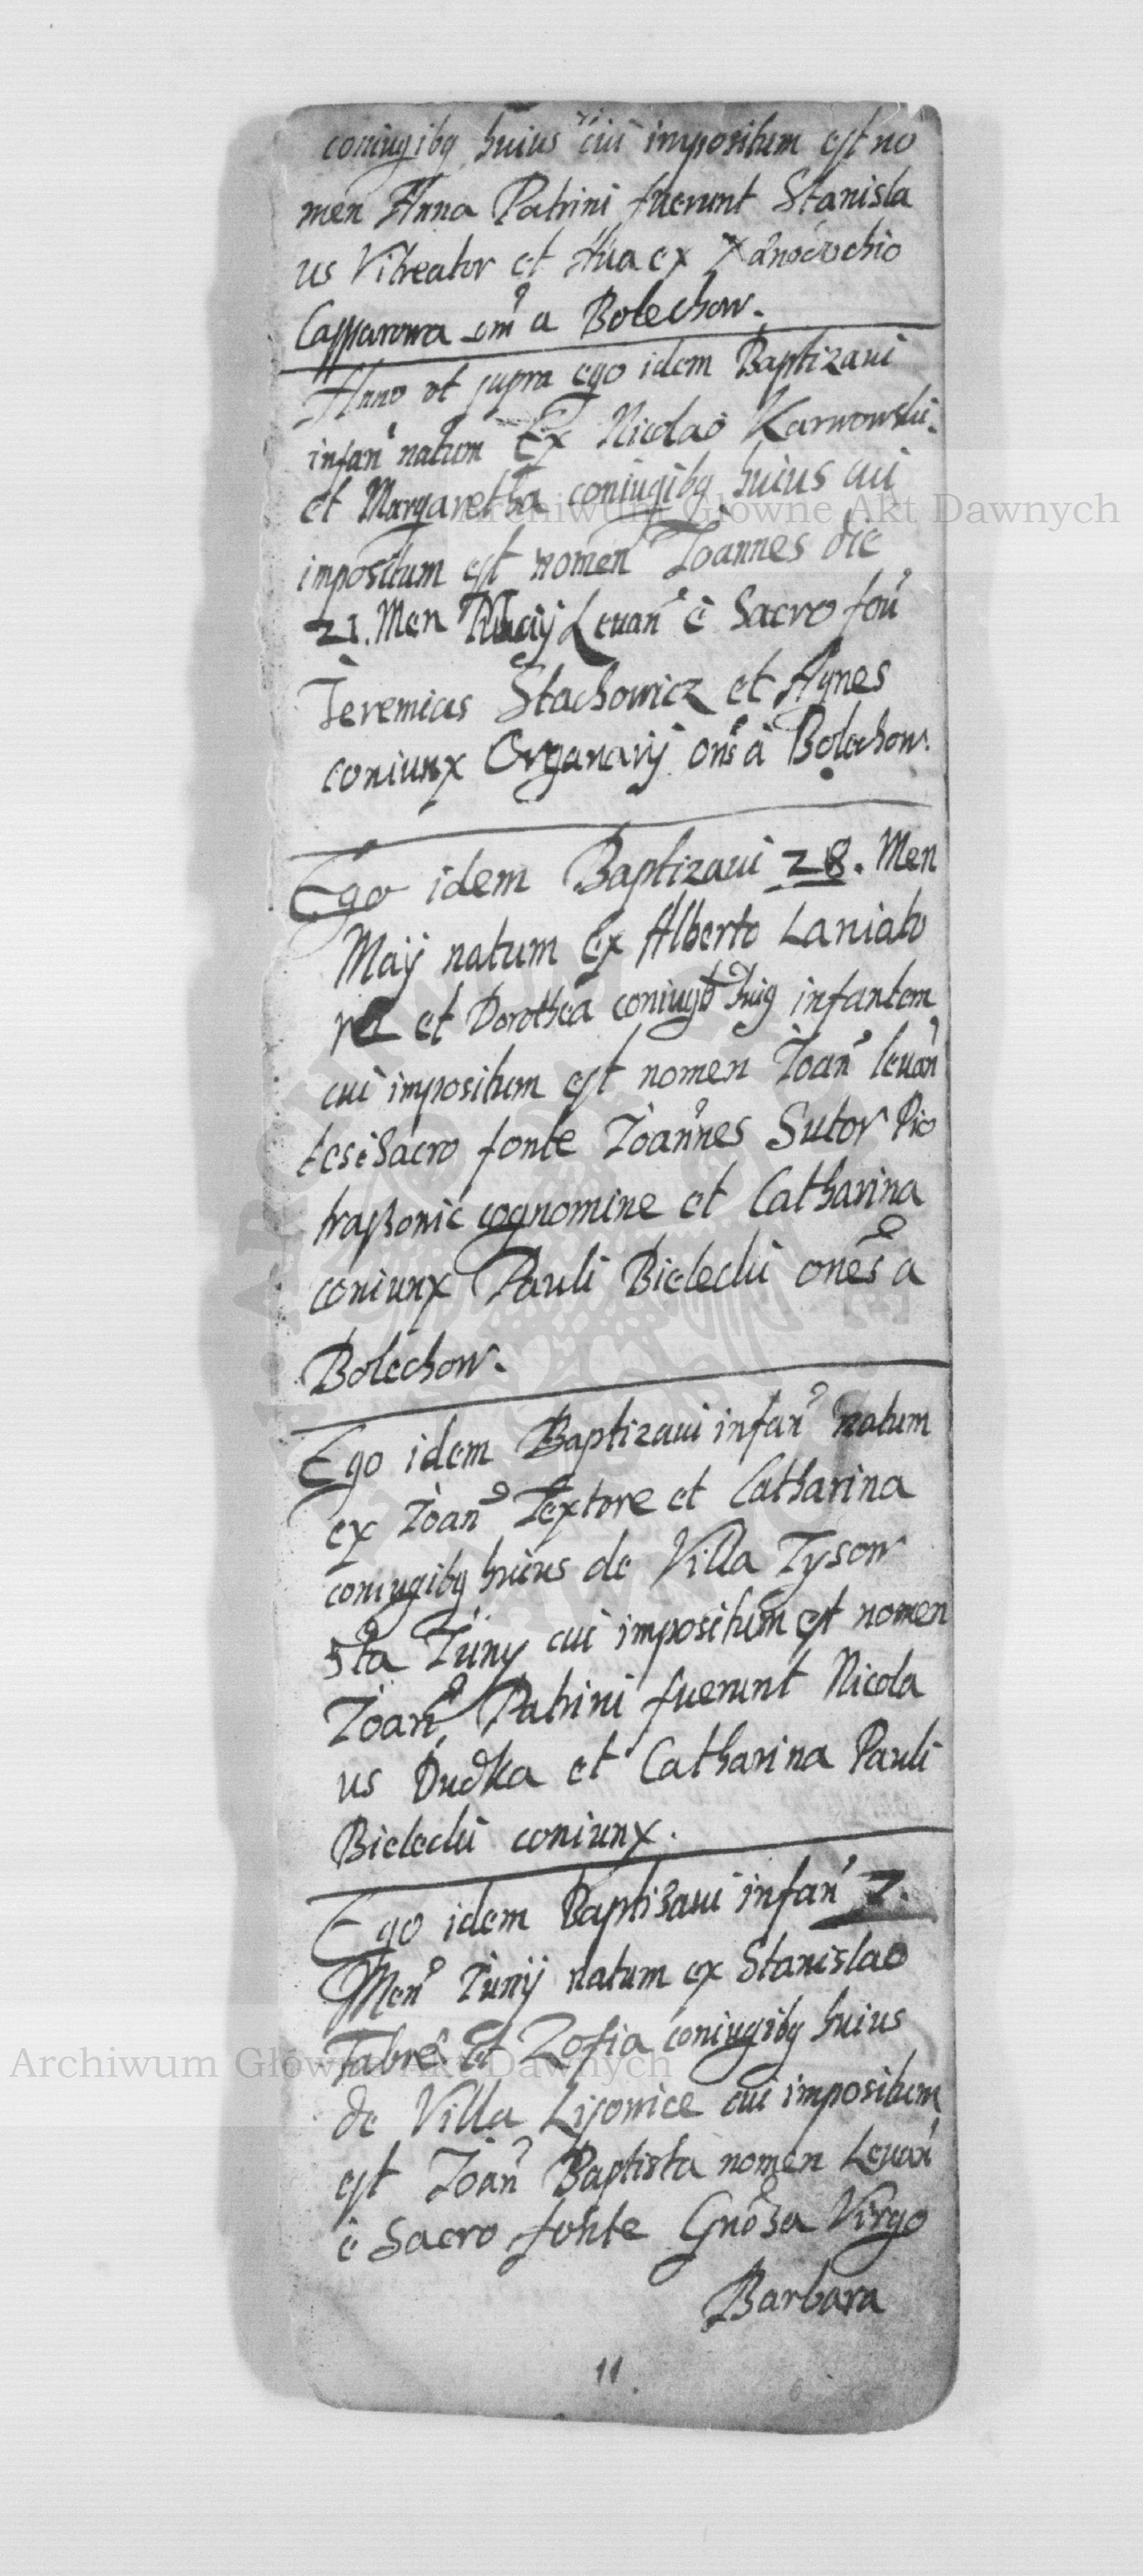 coniugibq huius cui impositum est no
men Anna Patrini fuerunt Stanisla
us Vitreator et ex
a Bolechow.
Anno ut supra ego idem Baptizavi
infan natum Ex Nicolao Karwowski
et Margaretha coniugibq huius cui
impositum est nomen Joannes die
21. Men Maij Levan è Sacro fon
Jeremias Stachowicz et Agnes
coniunx Organarij onẽs à Bolechow.
Ego idem Baptizaui 28. Men
Maij natum Ex Alberto Laniato
re et Dorothea coniugib huiq infantem
cui impositum est nomen Joañ leuan
tes è Sacro fonte Joannes Sutor Pio
traßowic cognomine et Catharina
coniunx Pauli Bielecki onẽs a
Bolechow.
Ego idem Baptizaui infañ natum
ex Joañ Textore et Catharina
coniugibq huius de Villa Tysow
5ta Juny cui impositum est nomen
Joañ, Patrini fuerunt Nicola
us Dudka et Catharina Pauli
Bielecki coniunx.
Ego idem Baptisaui infañ 7.
Meñ Junij natum ex Stanislao
Fabre et Zofia coniugibq huius
de Villa Lisowice cui impositum
est Joañ Baptista nomen Leuañ
è Sacro fonte Gnõsa Virgo
Barbara
11
Archiwum Główne Akt Dawnych
Archiwum Główne Akt Dawnych